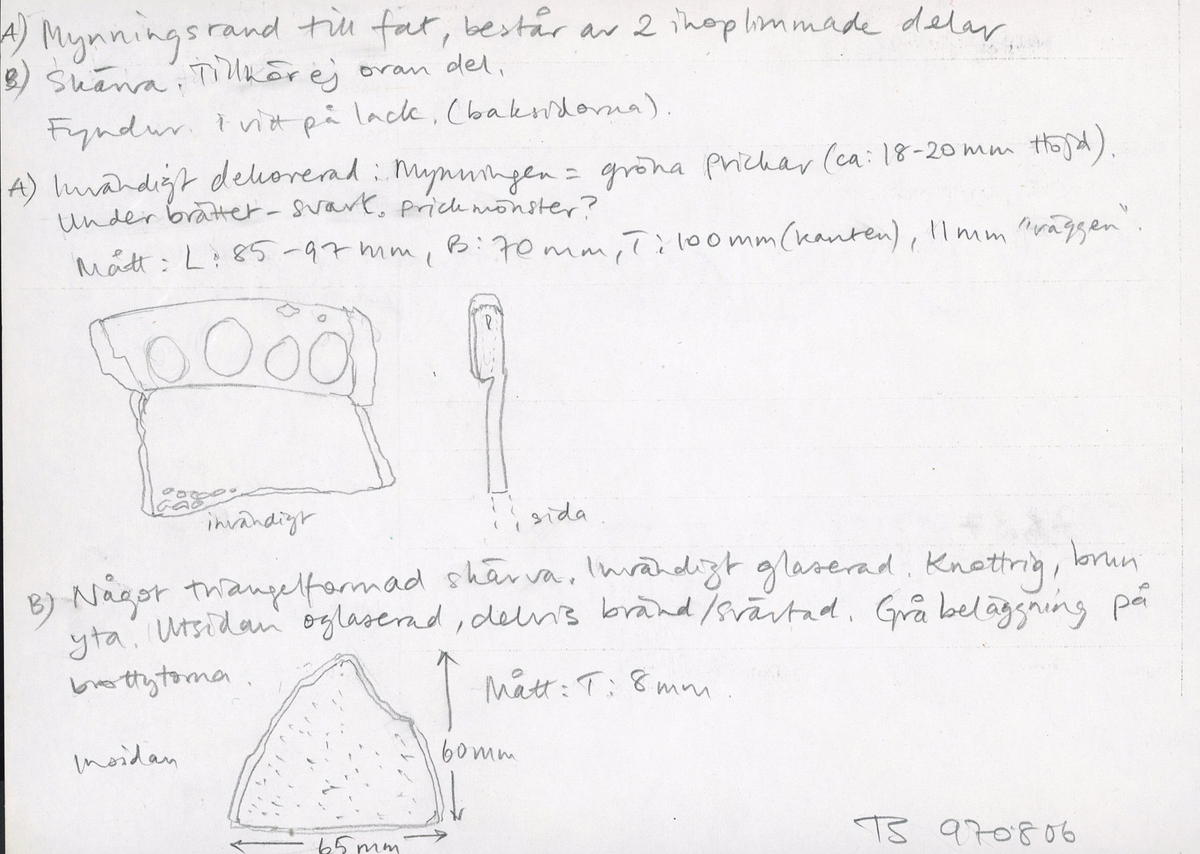 A) Mynningsrand till fat, består av 2 ihoplimmade delar
B) Skärva. Tillhör ej ovan del.
Fyndnr. i vitt på lack. (baksidorna).
A) Invändigt dekorerad: Mynningen = gröna prickar (ca: 18-20 mm Höjd).
Under brättet - svart. prickmönster?
Mått: L: 85-97 mm, B: 70 mm, T: 100 mm (kanten), 11 mm "väggen".
invändigt
sida
B) Något triangelformad skärva. Invändigt glaserad. Knottrig, brun
yta. Utsidan oglaserad, delvis bränd/svärtad. Grå beläggning på
brottytorna.
Mått: T: 8 mm.
Insidan
60 mm
65 mm
TB 970806